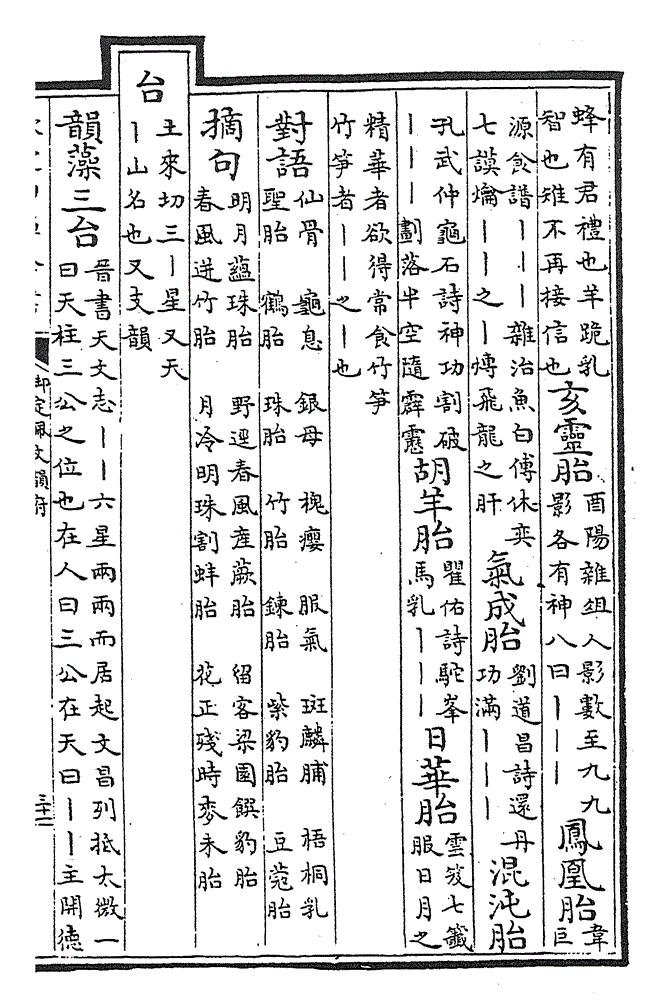 蜂有君禮也羊跪乳
智也雉不再接信也
亥靈胎
酉陽雜俎人影數至九九
影各有神八曰丨丨丨
鳳凰胎
韋
巨
源食譜丨丨丨雜治魚白傅休奕
七謨爚丨丨之丨煿飛龍之肝
氣成胎
劉道昌詩還丹
功滿丨丨丨
混沌胎
孔武仲龜石詩神功割破
丨丨丨劃落半空隨霹靂
胡羊胎
瞿佑詩駝峯
馬乳丨丨丨
日華胎
雲笈七籤
服日月之
精華者欲得常食竹笋
竹笋者丨丨之丨也
對語
仙骨 龜息 銀母 槐癭 服氣 斑麟脯 梧桐乳
聖胎 鶴胎 珠胎 竹胎 鍊胎 紫豹胎 豆蔻胎
摘句
明月蘊珠胎 野逕春風産蕨胎 留客梁園饌豹胎
春風迸竹胎 月冷明珠割蚌胎 花正殘時麥未胎
台
土來切三丨星又天
丨山名也又支韻
韻藻三台
晉書天文志丨丨六星兩兩而居起文昌列抵太微一
曰天柱三公之位也在人曰三公在天曰丨丨主開德
御定佩文韻府